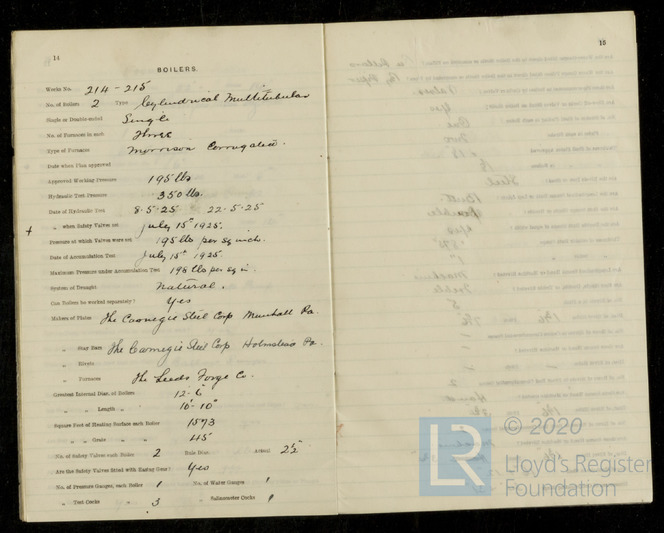 14
BOILERS.
Works No. 214-215
No. of Boilers 2 Type Cylindrical Multitubular
Single or Double-ended Single
No. of Furnaces in each Three
Type of Furnaces Morrison Corrugated.
Date when Plan approved
Approved Working Pressure 195 lbs
Hydraulic Test Pressure 350 lbs.
Date of Hydraulic Test 8-5-25 22-5-25
+ „ when Safety Valves set July 15th 1925.
Pressure at which Valves were set 195 lbs per sq inch.
Date of Accumulation Test July 15th 1925
Maximum Pressure under Accumulation Test 198 lbs per sq in.
System of Draught Natural.
Can Boilers be worked separately? Yes
Makers of Plates The Carnegie Steel Corp Munhall Pa.
„ Stay Bars The Carnegie Steel Corp Homestead Pa.
„ Rivets
„ Furnaces The Leeds Forge Co.
Greatest Internal Diam. of Boilers 12-6"
„ „ Length „ 10'-10"
Square Feet of Heating Surface each Boiler 1573
„ „ Grate „ „ 45
No. of Safety Valves each Boiler 2 Rule Diam. Actual 2½
Are the Safety Valves fitted with Easing Gear? Yes
No. of Pressure Gauges, each Boiler 1 No. of Water Gauges 1
„ Test Cocks „ 3 „ Salinometer Cocks 1
15
© 2020
LR
Lloyd's Register
Foundation